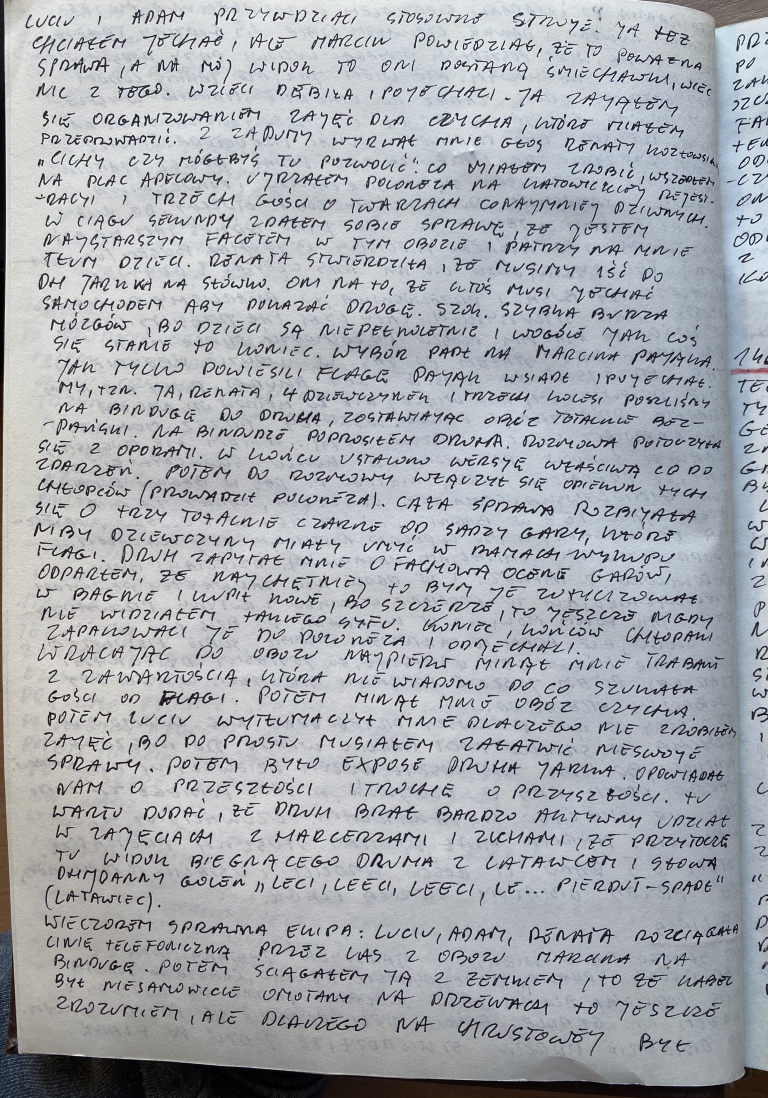 LUCIU I ADAM PRZYWDZIALI STOSOWNE STROJE. JA TEŻ
CHCIAŁEM JECHAĆ, ALE MARCIN POWIEDZIAŁ, ŻE TO POWAŻNA
SPRAWA, A NA MÓJ WIDOK TO ONI DOSTANĄ ŚMIECHAWKI, WIĘC
NIC Z TEGO. WZIĘLI DEBILA I POJECHALI. JA ZAJĄŁEM
SIĘ ORGANIZOWANIEM ZAJĘĆ DLA CZYCHA, KTÓRE MIAŁEM
PRZEPROWADZIĆ. Z ZADUMY WYRWAŁ MNIE GŁOS RENATY KOZŁOWSKIEJ
„CICHY CZY MÓGŁBYŚ TU POZWOLIĆ". CO MIAŁEM ZROBIĆ, WSZEDŁEM
NA PLAC APELOWY. UJRZAŁEM POLONEZA NA KATOWICKIEJ REJEST-
-RACJI I TRZECH GOŚCI O TWARZACH CONAJMNIEJ DZIWNYCH.
W CIĄGU SEKUNDY ZDAŁEM SOBIE SPRAWĘ, ŻE JESTEM
NAJSTARSZYM FACETEM W TYM OBOZIE I PATRZY NA MNIE
TŁUM DZIECI. RENATA STWIERDZIŁA, ŻE MUSIMY IŚĆ DO
DH JARKA NA SŁÓWKO. ONI NA TO, ŻE KTOŚ MUSI JECHAĆ
SAMOCHODEM ABY POKAZAĆ DROGĘ. SZOK. SZYBKA BURZA
MÓZGÓW, BO DZIECI SĄ NIEPEŁNOLETNIE I WOGÓLE JAK COŚ
SIĘ STANIE TO KONIEC. WYBÓR PADŁ NA MARCINA PAJĄKA.
JAK TYLKO POWIESILI FLAGĘ PAJĄK WSIADŁ I POJECHAŁ.
MY, TZN. JA, RENATA, 4 DZIEWCZYNKI I TRZECH KOLESI POSZLIŚMY
NA BINDUGĘ DO DRUHA, ZOSTAWIAJĄC OBÓZ TOTALNIE BEZ-
-PAŃSKI. NA BINDUDZE POPROSIŁEM DRUHA. ROZMOWA POTOCZYŁA
SIĘ Z OPORAMI. W KOŃCU USTALONO WERSJĘ WŁAŚCIWĄ CO DO
ZDARZEŃ. POTEM DO ROZMOWY WŁĄCZYŁ SIĘ OPIEKUN TYCH
CHŁOPCÓW (PROWADZIŁ POLONEZA). CAŁA SPRAWA ROZBIJAŁA
SIĘ O TRZY TOTALNIE CZARNE OD SADZY GARY, KTÓRE
NIBY DZIEWCZYNY MIAŁY UMYĆ W RAMACH WYKUPU
FLAGI. DRUH ZAPYTAŁ MNIE O FACHOWĄ OCENĘ GARÓW,
ODPARŁEM, ŻE NAJCHĘTNIEJ TO BYM JE ZUTYLIZOWAŁ
W BAGNIE I KUPIŁ NOWE, BO SZCZERZE, TO JESZCZE NIGDY
NIE WIDZIAŁEM TAKIEGO SYFU. KONIEC, KOŃCÓW CHŁOPAKI
ZAPAKOWALI JE DO POLONEZA I ODJECHALI.
WRACAJĄC DO OBOZU NAJPIERW MINĄŁ MNIE TRABANT
Z ZAWARTOŚCIĄ, KTÓRA NIE WIADOMO PO CO SZUKAŁA
GOŚCI OD FLAGI. POTEM MINĄŁ MNIE OBÓZ CZYCHA.
POTEM LUCIU WYTŁUMACZYŁ MNIE DLACZEGO NIE ZROBIŁEM
ZAJĘĆ, BO PO PROSTU MUSIAŁEM ZAŁATWIĆ NIESWOJE
SPRAWY. POTEM BYŁO EXPOSE DRUHA JARKA. OPOWIADAŁ
NAM O PRZESZŁOŚCI I TROCHĘ O PRZYSZŁOŚCI. TU
WARTO DODAĆ, ŻE DRUH BRAŁ BARDZO AKTYWNY UDZIAŁ
W ZAJĘCIACH Z HARCERZAMI I ZUCHAMI, ŻE PRZYTOCZĘ
TU WIDOK BIEGNĄCEGO DRUHA Z LATAWCEM I SŁOWA
DH JOANNY GOLEŃ „LECI, LEECI, LEECI, LE... PIERDUT-SPADŁ"
(LATAWIEC).
WIECZOREM SPRAWNA EKIPA: LUCIU, ADAM, RENATA ROZCIĄGAŁA
LINIĘ TELEFONICZNĄ PRZEZ LAS Z OBOZU MARCINA NA
BINDUGĘ. POTEM ŚCIĄGAŁEM JĄ Z ZEMKIEM, TO ŻE KABEL
BYŁ NIESAMOWICIE OMOTANY NA DRZEWACH TO JESZCZE
ZROZUMIEM, ALE DLACZEGO NA CHRUSTOWEJ BYŁ